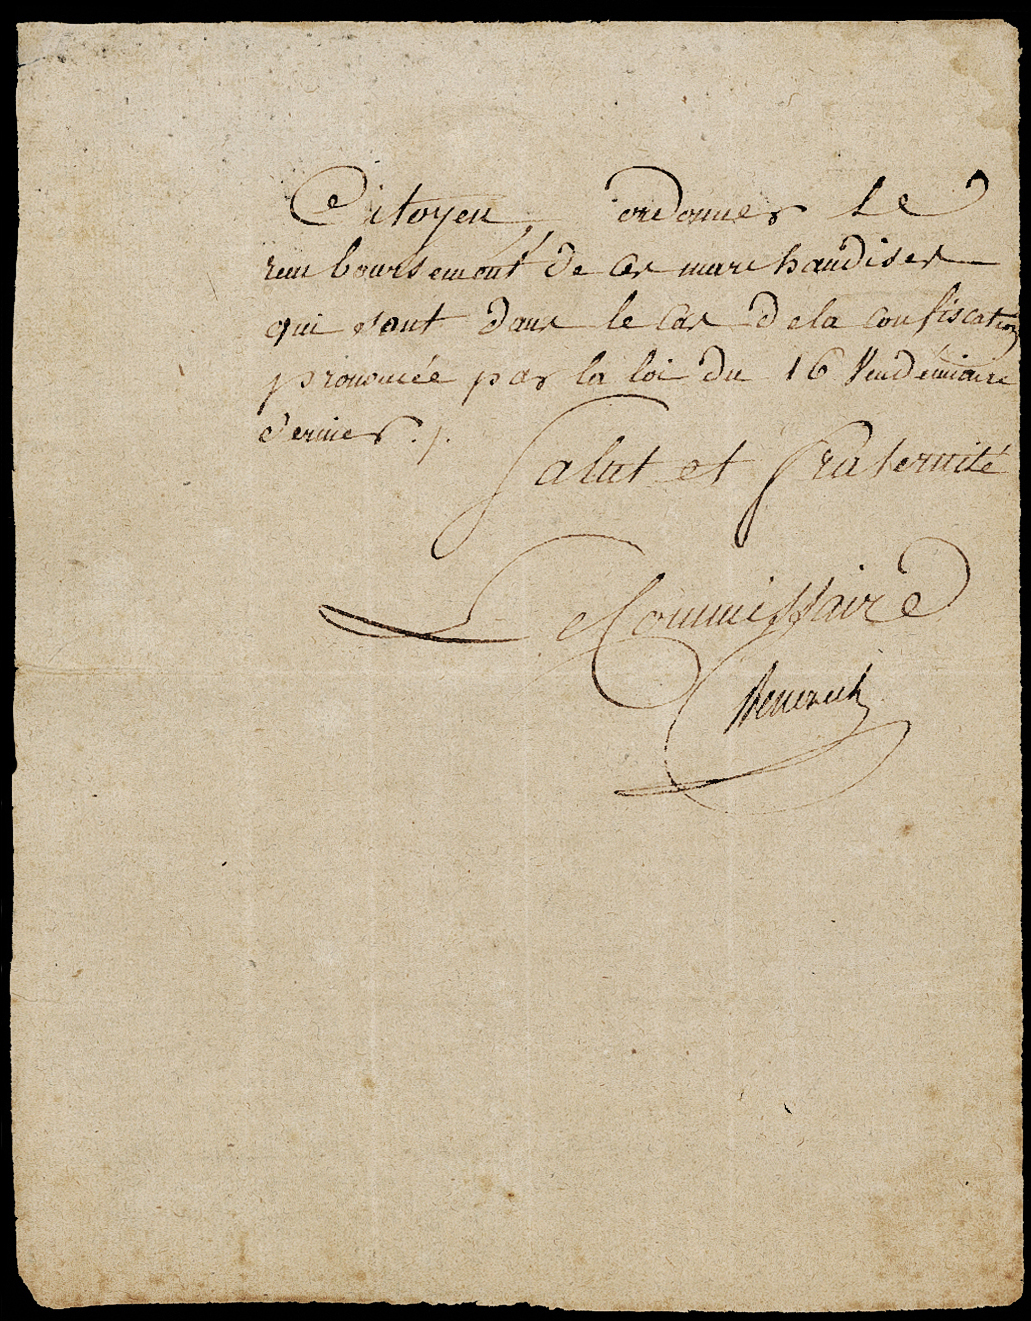 Citoyen, ordonner le
remboursement de ces marchandises
qui sont dans le cas de la confiscation
prononcée par la loi du 16 Vendémiaire
dernier ./.
Salut et Fraternité
Le Commissaire